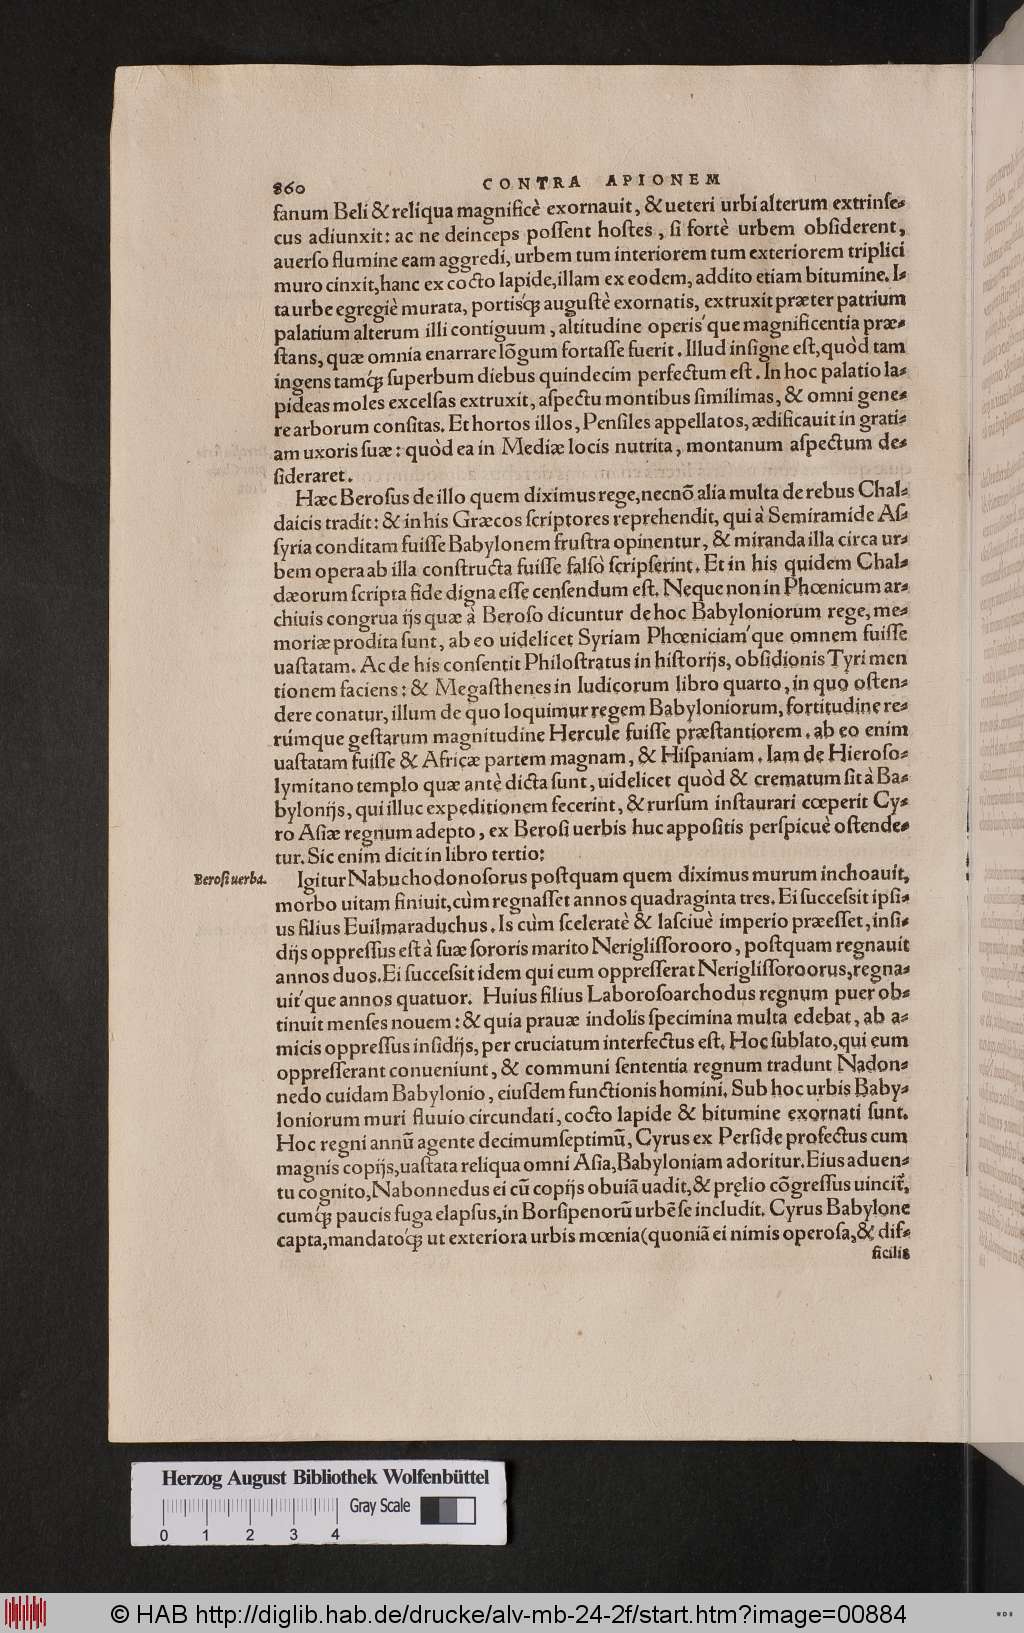 860 CONTRA APIONEM
fanum Beli & reliqua magnificè exornauit, & ueteri urbi alterum extrinſe-
cus adiunxit: ac ne deinceps poſſent hoſtes, ſi fortè urbem obſiderent,
auerſo flumine eam aggredi, urbem tum interiorem tum exteriorem triplici
muro cinxit, hanc ex cocto lapide, illam ex eodem, addito etiam bitumine. I-
ta urbe egregiè murata, portisq́ꝫ auguſtè exornatis, extruxit præter patrium
palatium alterum illi contiguum, altitudine operis´que magnificentia præ-
ſtans, quæ omnia enarrare lõgum fortaſſe fuerit. Illud inſigne eſt, quòd tam
ingens tamq́ꝫ ſuperbum diebus quindecim perfectum eſt. In hoc palatio la-
pideas moles excelſas extruxit, aſpectu montibus ſimilimas, & omni gene-
re arborum conſitas. Et hortos illos, Penſiles appellatos, ædificauit in grati-
am uxoris ſuæ: quòd ea in Mediæ locis nutrita, montanum aſpectum de-
ſideraret.
Hæc Beroſus de illo quem diximus rege, necnõ alia multa de rebus Chal-
daicis tradit: & in his Græcos ſcriptores reprehendit, qui à Semiramide Aſ-
ſyria conditam fuiſſe Babylonem fruſtra opinentur, & miranda illa circa ur-
bem opera ab illa conſtructa fuiſſe falſò ſcripſerint. Et in his quidem Chal-
dæorum ſcripta fide digna eſſe cenſendum eſt. Neque non in Phœnicum ar-
chiuis congrua ijs quæ à Beroſo dicuntur de hoc Babyloniorum rege, me-
moriæ prodita ſunt, ab eo uidelicet Syriam Phœniciam´que omnem fuiſſe
uaſtatam. Ac de his conſentit Philoſtratus in hiſtorijs, obſidionis Tyri men
tionem faciens: & Megaſthenes in Iudicorum libro quarto, in quo oſten-
dere conatur, illum de quo loquimur regem Babyloniorum, fortitudine re-
rúmque geſtarum magnitudine Hercule fuiſſe præſtantiorem. ab eo enim
uaſtatam fuiſſe & Africæ partem magnam, & Hiſpaniam. Iam de Hieroſo-
lymitano templo quæ antè dicta ſunt, uidelicet quòd & crematum ſit à Ba-
bylonijs, qui illuc expeditionem fecerint, & rurſum inſtaurari cœperit Cy-
ro Aſiæ regnum adepto, ex Beroſi uerbis huc appoſitis perſpicuè oſtende-
tur. Sic enim dicit in libro tertio:
Beroſi uerba.
Igitur Nabuchodonoſorus poſtquam quem diximus murum inchoauit,
morbo uitam finiuit, cùm regnaſſet annos quadraginta tres. Ei ſucceſsit ipſi-
us filius Euilmaraduchus. Is cùm ſceleratè & laſciuè imperio præeſſet, inſi-
dijs oppreſſus eſt à ſuæ ſororis marito Nerigliſſorooro, poſtquam regnauit
annos duos. Ei ſucceſsit idem qui eum oppreſſerat Nerigliſſoroorus, regna-
uit´que annos quatuor. Huius filius Laboroſoarchodus regnum puer ob-
tinuit menſes nouem: & quia prauæ indolis ſpecimina multa edebat, ab a-
micis oppreſſus inſidijs, per cruciatum interfectus eſt. Hoc ſublato, qui eum
oppreſſerant conueniunt, & communi ſententia regnum tradunt Nadon-
nedo cuidam Babylonio, eiuſdem functionis homini. Sub hoc urbis Baby-
loniorum muri fluuio circundati, cocto lapide & bitumine exornati ſunt.
Hoc regni annũ agente decimumſeptimũ, Cyrus ex Perſide profectus cum
magnis copijs, uaſtata reliqua omni Aſia, Babyloniam adoritur. Eius aduen-
tu cognito, Nabonnedus ei cũ copijs obuiã uadit, & prȩlio cõgreſſus uincit̃,
cumq́ꝫ paucis fuga elapſus, in Borſipenorũ urbẽ ſe includit. Cyrus Babylone
capta, mandatoq́ꝫ ut exteriora urbis mœnia (quoniã ei nimis operoſa, & dif-
ficilis
Herzog August Bibliothek Wolfenbüttel
Gray Scale
0 1 2 3 4
© HAB http://diglib.hab.de/drucke/alv-mb-24-2f/start.htm?image=00884